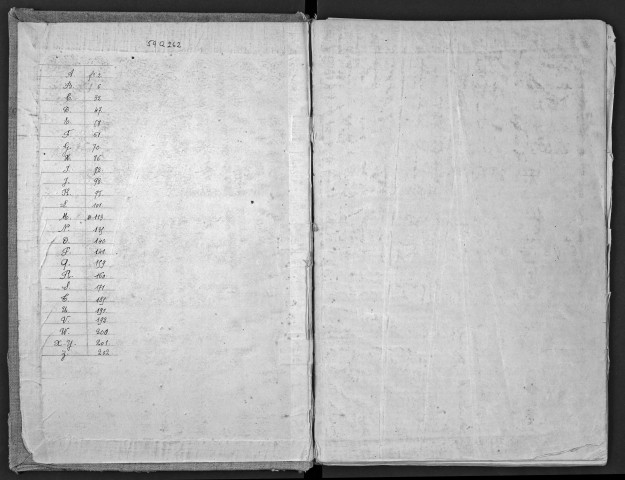 59 Q 262
A f° 2
B 6
C. 32
D. 47
E. 58
F. 61
G. 70
H. 86
I. 92
J. 93
K. 95
L 101
M. 113
N. 135
O. 140
P. 141
Q. 159
R. 160
S. 171
T. 187
U. 191
V. 192
W. 200
X. Y. 201
Z. 202